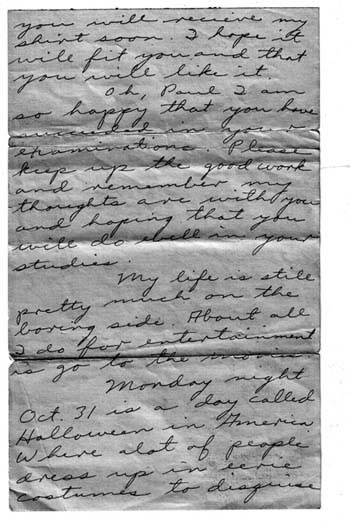 you will recieve my
shirt soon I hope it
will fit you and that
you will like it.
Oh, Paul I am
so happy that you have
succeeded in your
examinations. Please
keep up the good work
and remember my
thoughts are with you
and hoping that you
will do well in your
studies.
My life is still
pretty much on the
boring side. About all
I do for entertainment
is go to the movies
Monday night
Oct. 31 is a day called
Halloween in America
Where alot of people
dress up in eerie
costumes to disguise